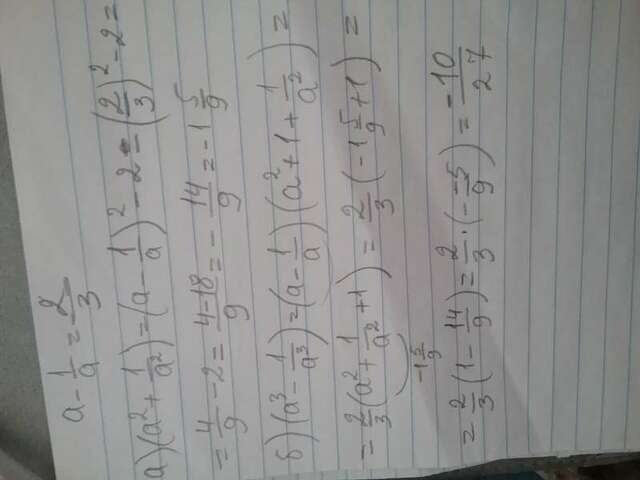 a - 1/a = 2/3
а) (a² + 1/a²) = (a - 1/a)² - 2 = (2/3)² - 2 =
= 4/9 - 2 = (4-18)/9 = - 14/9 = -1 5/9
б) (a³ - 1/a³) = (a - 1/a)(a² + 1 + 1/a²) =
= 2/3 (a² + 1/a² + 1) = 2/3 (-1 5/9 + 1) =
-1 5/9
= 2/3 (1 - 14/9) = 2/3 · (-5/9) = -10/27